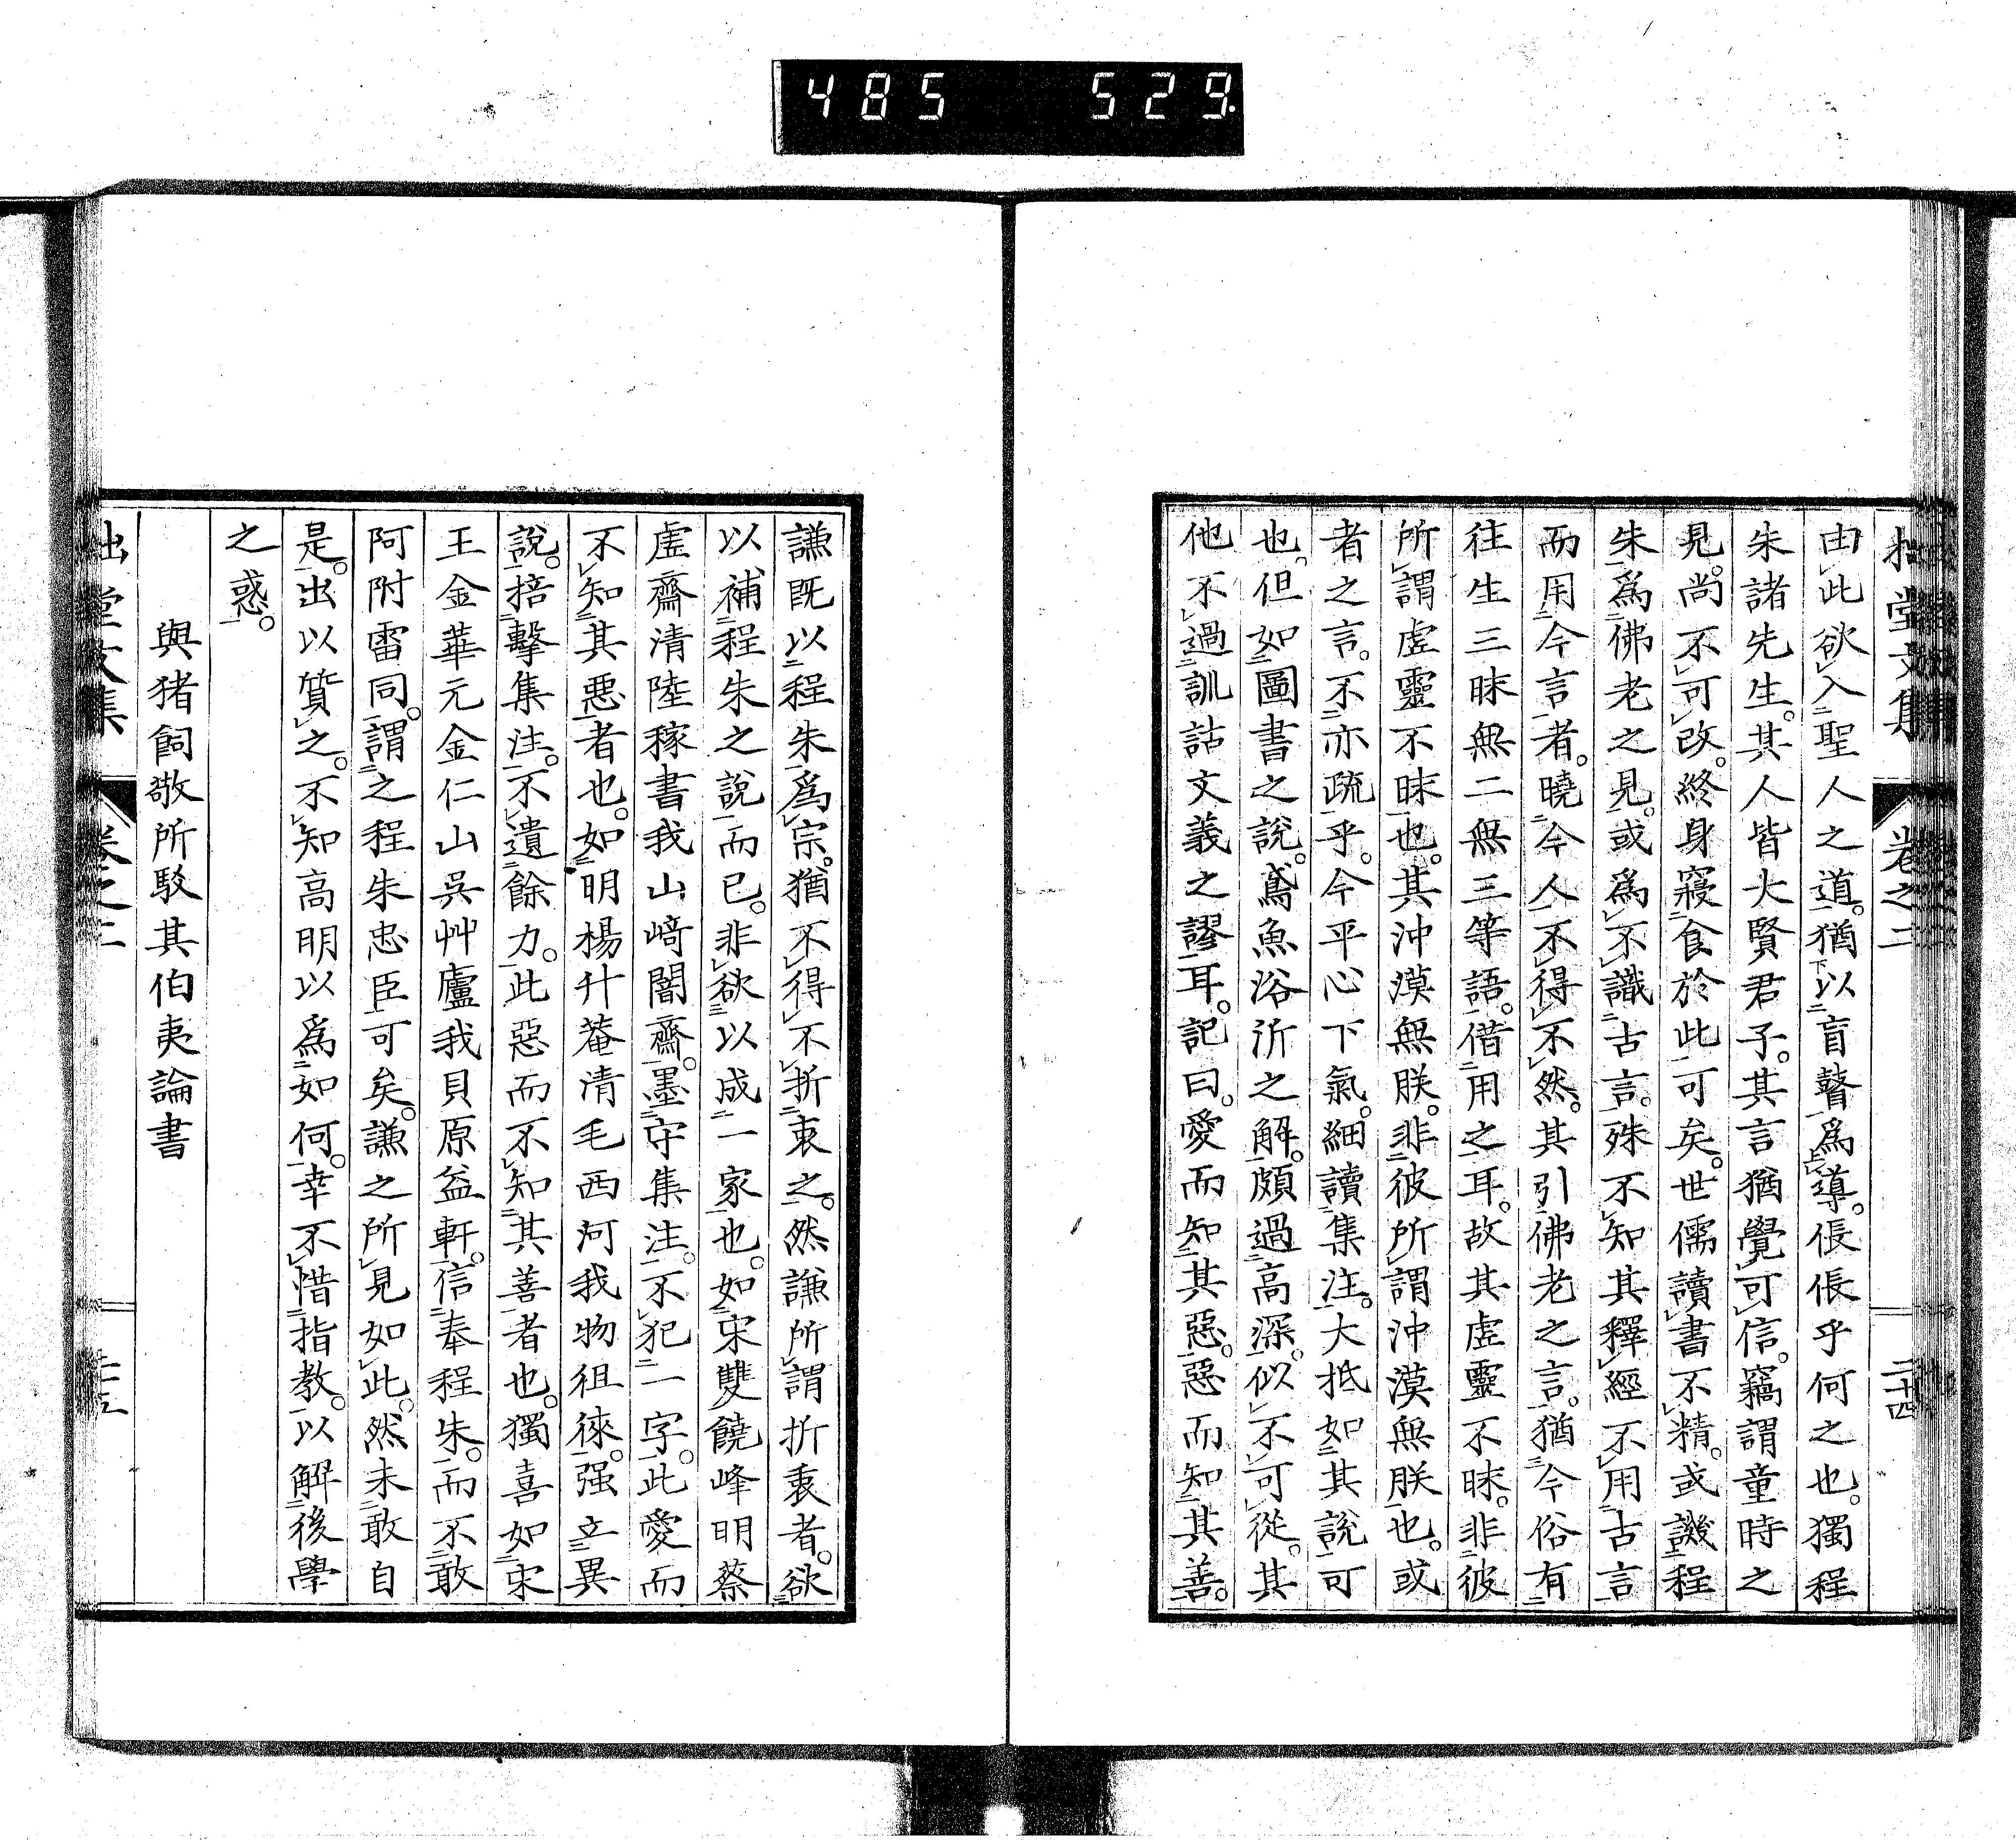 485 529
拙堂文集 卷之二 二十四
由此欲入聖人之道。猶以盲瞽爲導。倀倀乎何之也。獨程
朱諸先生。其人皆大賢君子。其言猶覺可信。竊謂童時之
見。尚不可改。終身寢食於此可矣。世儒讀書不精。或譏程
朱爲佛老之見。或爲不識古言。殊不知其釋經不用古言
而用今言者。曉今人不得不然。其引佛老之言。猶今俗有
往生三昧無二無三等語。借用之耳。故其虛靈不昧。非彼
所謂虛靈不昧也。其沖漠無朕。非彼所謂沖漠無朕也。或
者之言。不亦疏乎。今平心下氣。細讀集注。大抵如其說可
也。但如圖書之說。鳶魚浴沂之解。頗過高深。似不可從。其
他不過訓詁文義之謬耳。記曰。愛而知其惡。惡而知其善。
謙既以程朱爲宗。猶不得不折衷之。然謙所謂折衷者。欲
以補程朱之說而已。非欲以成一家也。如宋雙饒峰明蔡
虛齋清陸稼書我山﨑闇齋。墨守集注。不犯一字。此愛而
不知其惡者也。如明楊升菴清毛西河我物徂徠。强立異
說。掊擊集注。不遺餘力。此惡而不知其善者也。獨喜如宋
王金華元金仁山吳艸廬我貝原益軒。信奉程朱。而不敢
阿附雷同。謂之程朱忠臣可矣。謙之所見如此。然未敢自
是。出以質之。不知高明以爲如何。幸不惜指教。以解後學
之惑。
與猪飼敬所駁其伯夷論書
拙堂文集 卷之二 二十五